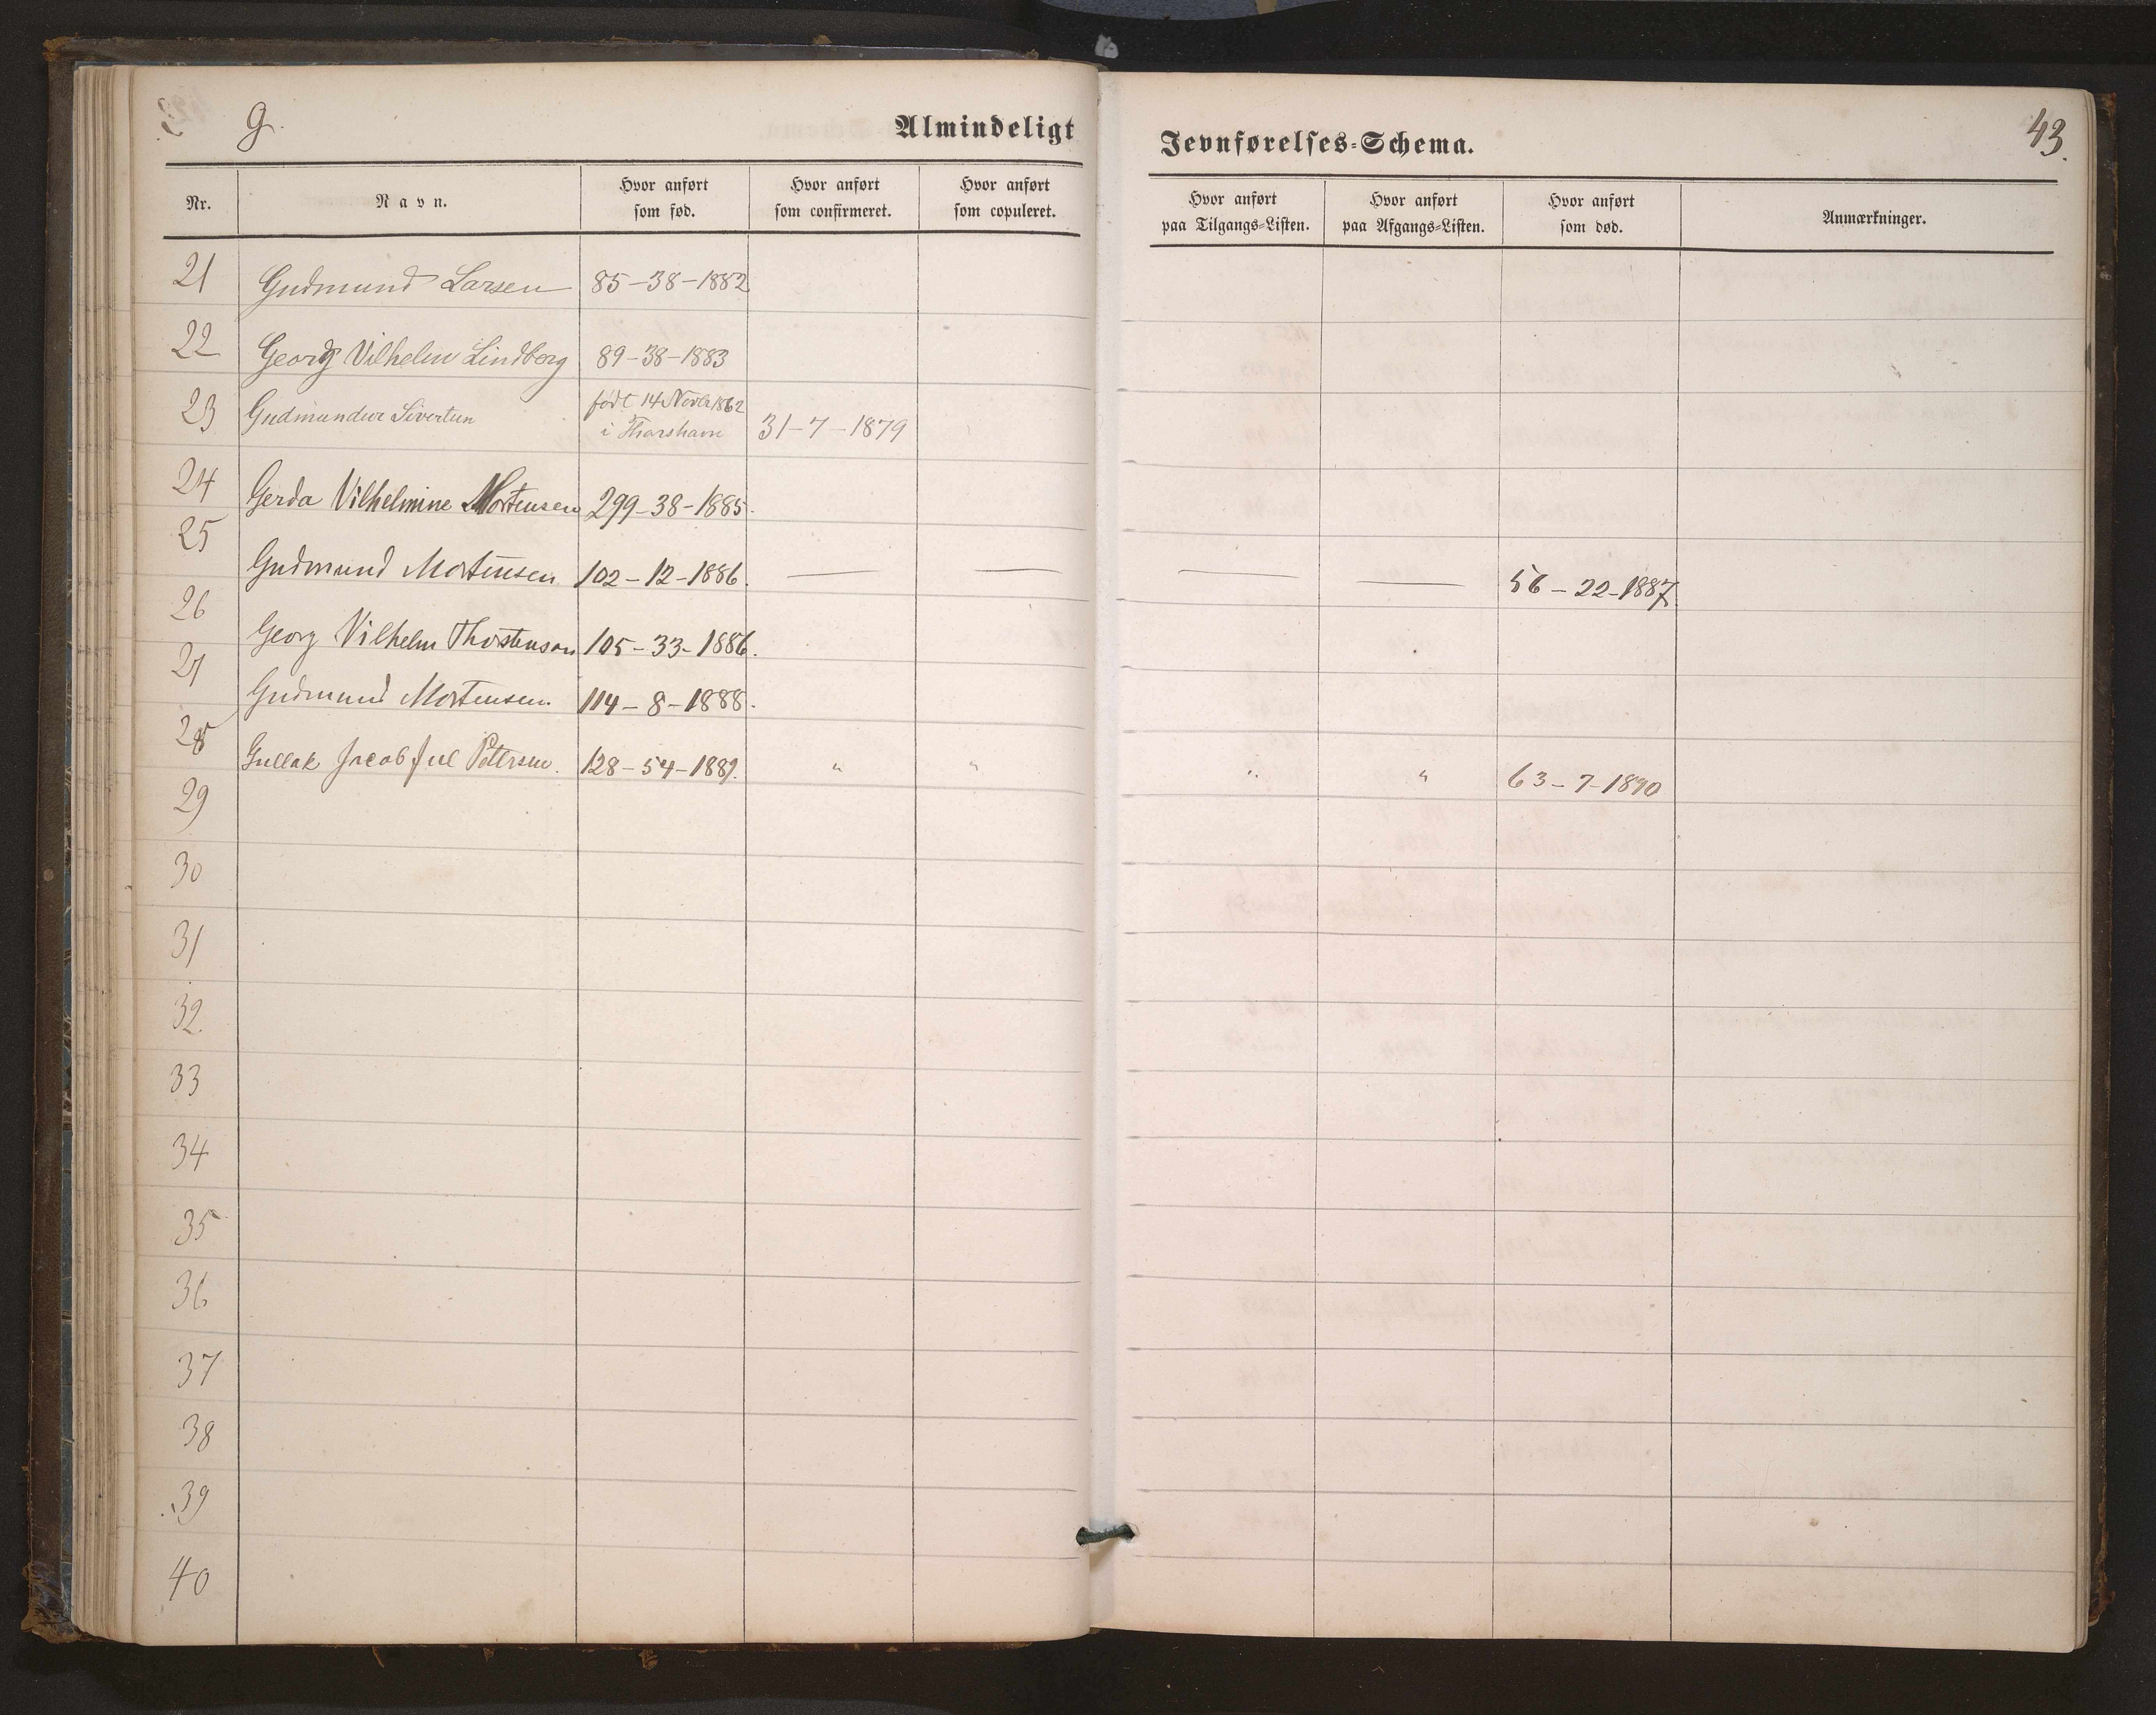 G.
Almindeligt Jevnførelses-Schema.
43.
Nr.
Navn.
Hvor anført som fød.
Hvor anført som confirmeret.
Hvor anført som copuleret.
Hvor anført paa Tilgangs-Listen.
Hvor anført paa Afgangs-Listen.
Hvor anført som død.
Anmærkninger.
21 Gudmund Larsen 85-38-1882
22 Georg Vilhelm Lindberg 89-38-1883
23 Gudmundur Sivertsen født 14 Novbr 1862 i Thorshavn 31-7-1879
24 Gerda Vilhelmine Mortensen 299-38-1885.
25 Gudmund Mortensen 102-12-1886. — — — — 56-22-1887.
26 Georg Vilhelm Thorstenson 105-33-1886.
27 Gudmund Mortensen. 114-8-1888.
28 Gullak Jacob Jul Petersen. 128-54-1889. " " " " 63-7-1890
29
30
31
32.
33
34
35
36
37
38
39
40